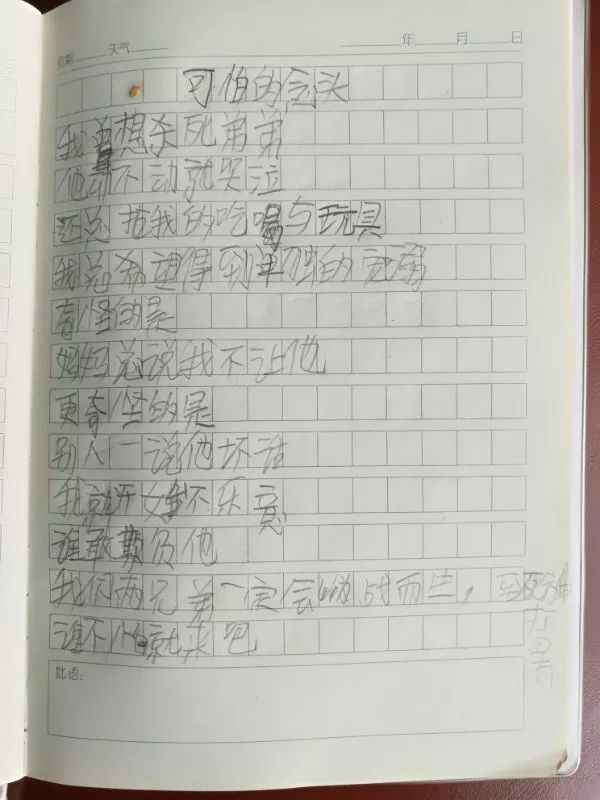 日期 天气 年 月 日
可伯的念头
我曾想杀死弟弟
他动不动就哭泣
还总抢我的吃喝与玩具
我总希望得到单独的玩弟
奇怪的是
妈妈总说我不让他
更奇怪的是
别人一说他坏话
我就开始不乐意
谁敢欺负他
我们两兄弟一定会 战而上，至死方
谁不怕就来吧
批语：